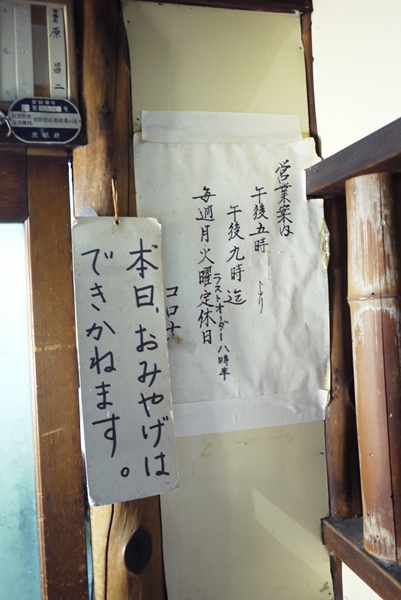 営業案内
午後五時
より
午後九時迄
ラストオーダー八時半
毎週月火曜定休日
コロナ
本日、おみやげは
できかねます。
原昌二